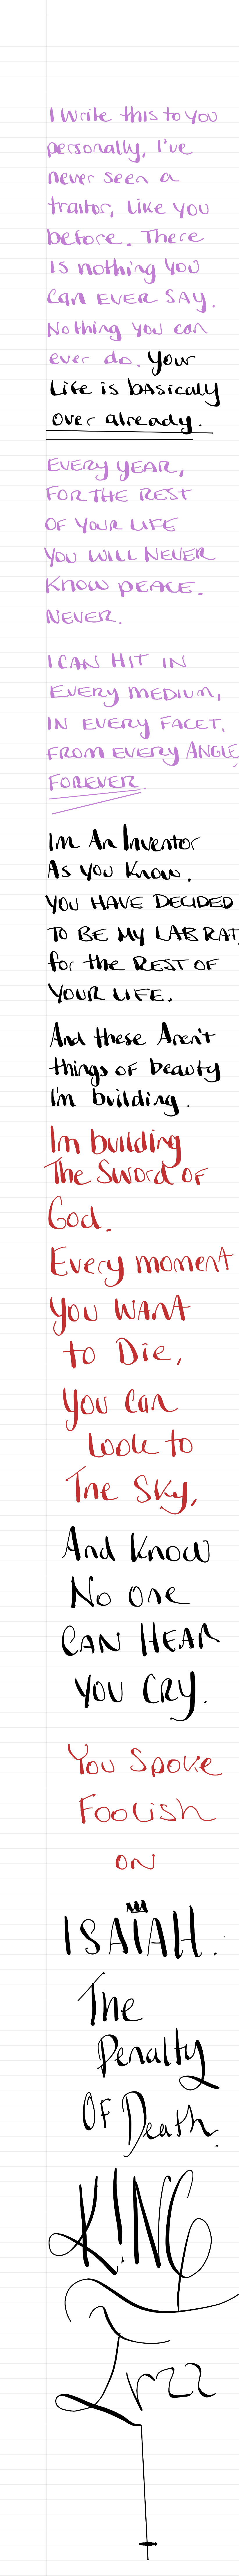 I Write this to you
personally, I've
never seen a
traitor, like you
before. There
is nothing you
can EVER SAY.
Nothing you can
ever do. Your
Life is basicaly
over already.
EVERY YEAR,
FOR THE REST
OF YOUR LIFE
YOU WILL NEVER
KNOW PEACE.
NEVER.
I CAN HIT IN
EVERY MEDIUM,
IN EVERY FACET,
FROM EVERY ANGLE,
FOREVER.
Im An Inventor
As you know.
YOU HAVE DECIDED
TO BE MY LAB RAT,
for the REST OF
YOUR LIFE.
And these Aren't
things of beauty
I'm building.
Im building
The Sword of
God.
Every moment
you WANt
to Die,
you can
look to
The Sky,
And know
No one
CAN HEAR
YOU CRY.
You Spoke
Foolish
ON
ISAIAH.
The
Penalty
OF Death.
K!NG